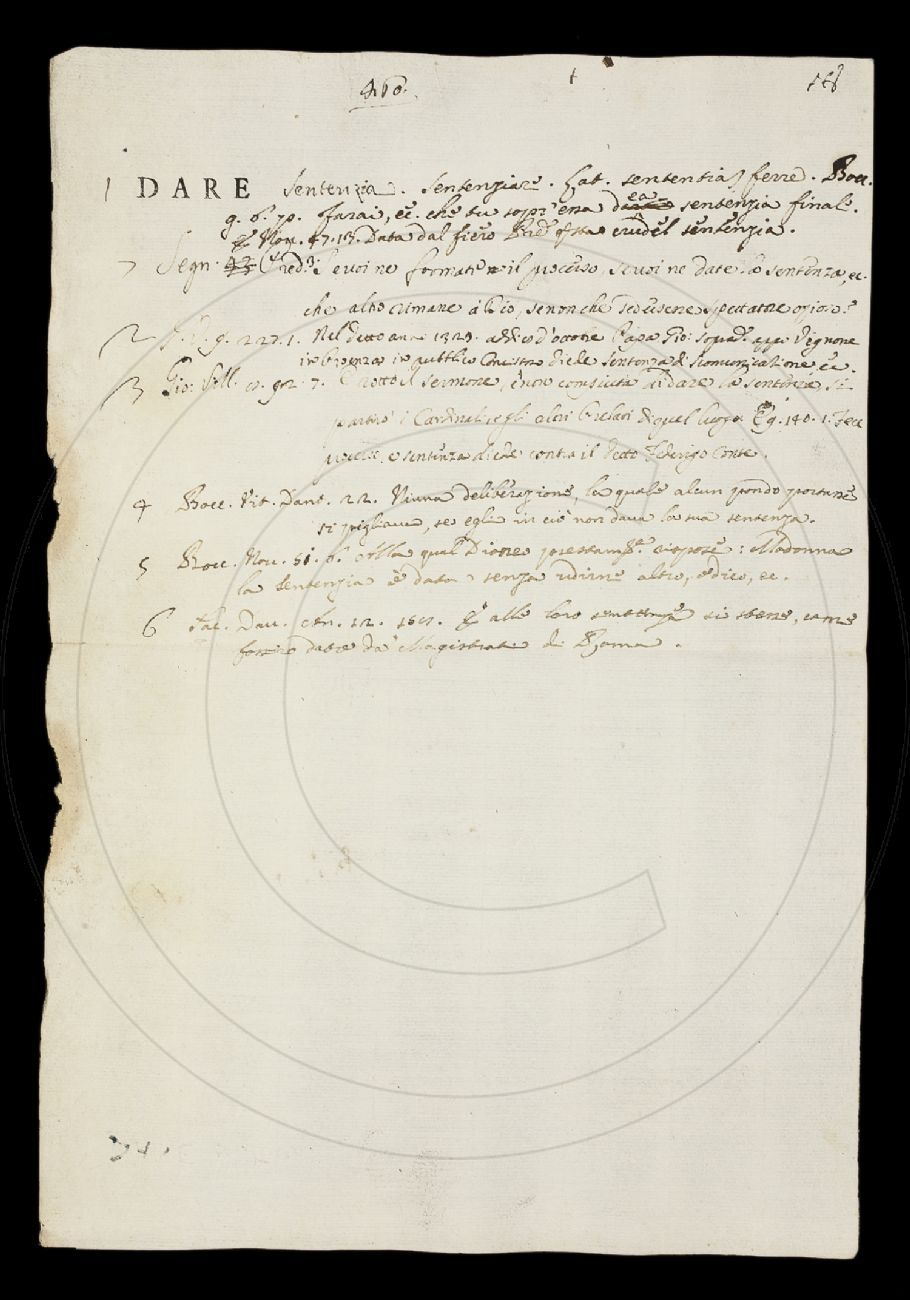 460.
158
1 DARE Sentenzia. Sentenziare. Lat. sententiã ferre. Bocc.
g. 6. p. Farai, ec. che tu sopr' essa dea sentenzia final.
E Nov. 47. 13. Data dal fiero Pad. qsta crudel sentenzia.
7 Segn. Cred. Se voi ne formate il processo, se voi ne date la sentenza, ec.
che altro rimane a Dio, se non che sedersene spettatore
2 G. V. 9. 227. 1. Nel detto anno 1329. d'ottobre Papa Gio: app. Vignone
in in pubblico Concistoro diede Sentenza di Scomunicazione, ec.
3 Gio: Vill. 7. il sermone, e non compiuta di dare la sentenza, si
partiro i Cardinali, e gli altri Prelati di quel luogo. E g. 140. 1. Fece
e sentenza diede contra il detto Federigo Conte.
4 Bocc. Vit. Dant. 22. Niuna deliberazione, la quale alcun pondo portasse
si pigliava, se egli in ciò non dava la sua sentenza.
5 Bocc. Nov. 51. 6. Alla qual Dioneo prestamte. rispose: Madonna
la sentenzia è data senza udirne altro, e dico, ec.
6 Tac. Dav. Ann. 12. 161. E alle loro sentenze si stesse, come
fossero date da' Magistrati di Roma.